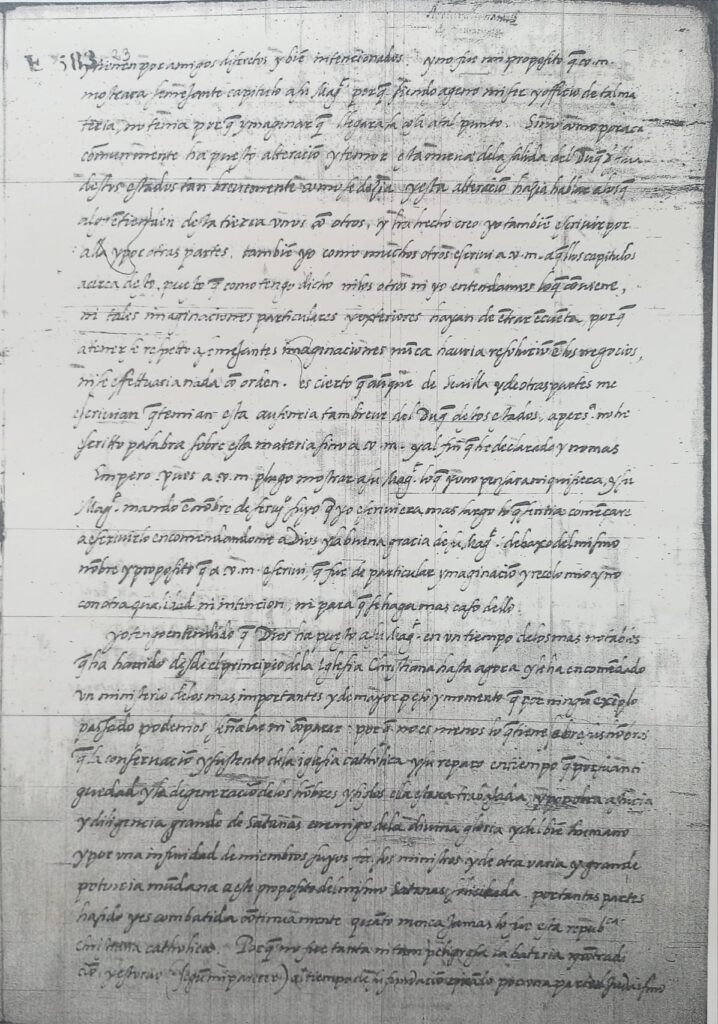 E 583 23
tienen por amigos discretos y biē intencionados. y no fue mi proposito q̄ v.m.
mostrara semejante capitulo a su Mag.ᵈ porq̄ siendo ageno mi ser y officio de tal ma
teria, no tenia por q̄ ymaginar q̄ llegara la cosa a tal punto. Sino como por aca
comunmente ha puesto alteraciō y temor esta nueua dela salida del Duq̄
destos estados tan breuemente como se dezia. y esta alteraciō hazia hablar a los q̄
algo ētienden desta tierra vnos cō otros, y ha hecho creo yo tambiē escriuir por
alla y por otras partes. tambiē yo como muchos otros escriui a v.m. aq̄llos capitulos
acerca desto, puesto q̄ como tengo dicho ni los otros ni yo entendamos lo q̄ conuiene,
ni tales imaginaciones particulares y exteriores hayan de ētrar ē cuēta, porq̄
a tener se respetto a semejantes imaginaciones nūca hauria resoluciō ē los negocios,
ni se effettuaria nada cō orden. es cierto q̄ aunque de Seuilla y de otras partes me
escriuian q̄ temian esta ausentia tam breue del Duq̄ destos estados, a persᵃ. no he
scritto palabra sobre esta materia sino a v.m. y al fin q̄ he declarado y no mas
Empero pues a v.m. plugo mostrar a su Mag.ᵈ lo q̄ poco pensara mi quisiera, y su
Mag.ᵈ mando ē nōbre de seruᵒ suyo q̄ yo escriuiera mas largo lo q̄ sentia comēçare
a escriuirlo encomendandome a Dios y a la buena gracia de su Mag.ᵈ debaxo del mismo
nōbre y proposito q̄ a v.m. escriui, q̄ fue de particular ymaginaciō y recelo mio y no
con otra qualidad ni intincion, ni para q̄ se haga mas caso dello.
yo tengo entendido q̄ Dios ha puesto a su Mag.ᵈ en vn tiempo delos mas notables
q̄ ha hauido desde el principio dela Iglesia Christiana hasta agora y le ha encomēdado
vn ministerio delos mas importantes y de mayor peso y momento q̄ por ningun exēplo
passado podemos señalar ni cōparar: porq̄ no es menos lo q̄ tiene sobre sus ōbros
q̄ la conseruaciō y sustento dela iglesia catholica y su reparo en tiempo q̄ por su anti
guedad y la degeneraciō delos hōbres y hijos ella estaua trabajada y por otra astucia
y diligencia grande de Satanas enemigo dela diuina gloria y del biē humano
y por vna infinidad de miembros suyos ministros y de otra varia y grande
potencia mūdana a este proposito del mismo Satanas por tantas partes
ha sido y es combatida cōtinuamente quāto nunca jamas lo fue esta repubᶜᵃ.
christiana catholica. Porq̄ no fue tanta ni tam peligrosa la bateria y cōtradi
ciō y estoruo (segun mi parecer) al tiempo de su fundaciō quādo por vna parte el Iudaismo